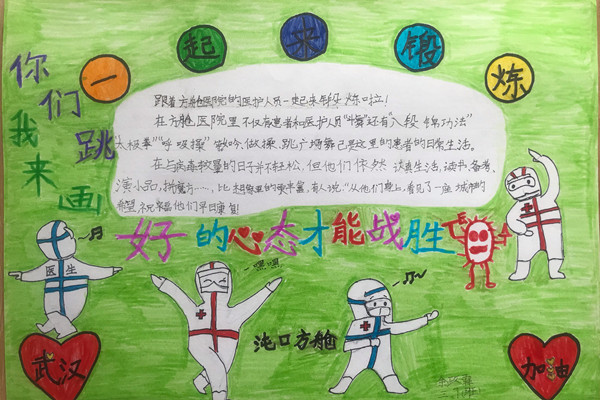 一起来锻炼
你们跳
我来画
跟着方舱医院的医护人员一起来锻炼啦!
在方舱医院里不仅有患者和医护人员“斗舞”还有“八段锦功法”
“太极拳”“呼吸操”做呤做操、跳广场舞已是这里的患者的日常生活。
在与病毒较量的日子并不轻松,但他们依然认真生活,读书、备考、
演小品,拼魔方……,比想象里的要丰富,有人说:“从他们身上,看见了一座城市的
希望,祝愿他们早日康复!
好的心态才能战胜
医生
嘿嘿
沌口方舱
武汉
加油